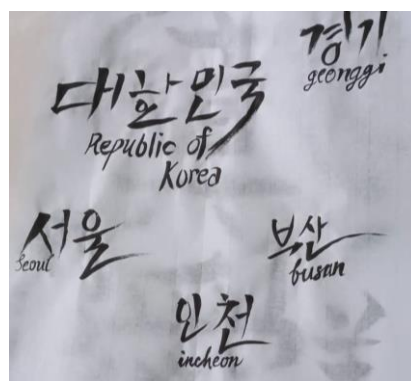 경기
geonggi
대한민국
Republic of
Korea
서울
Seoul
부산
busan
인천
incheon